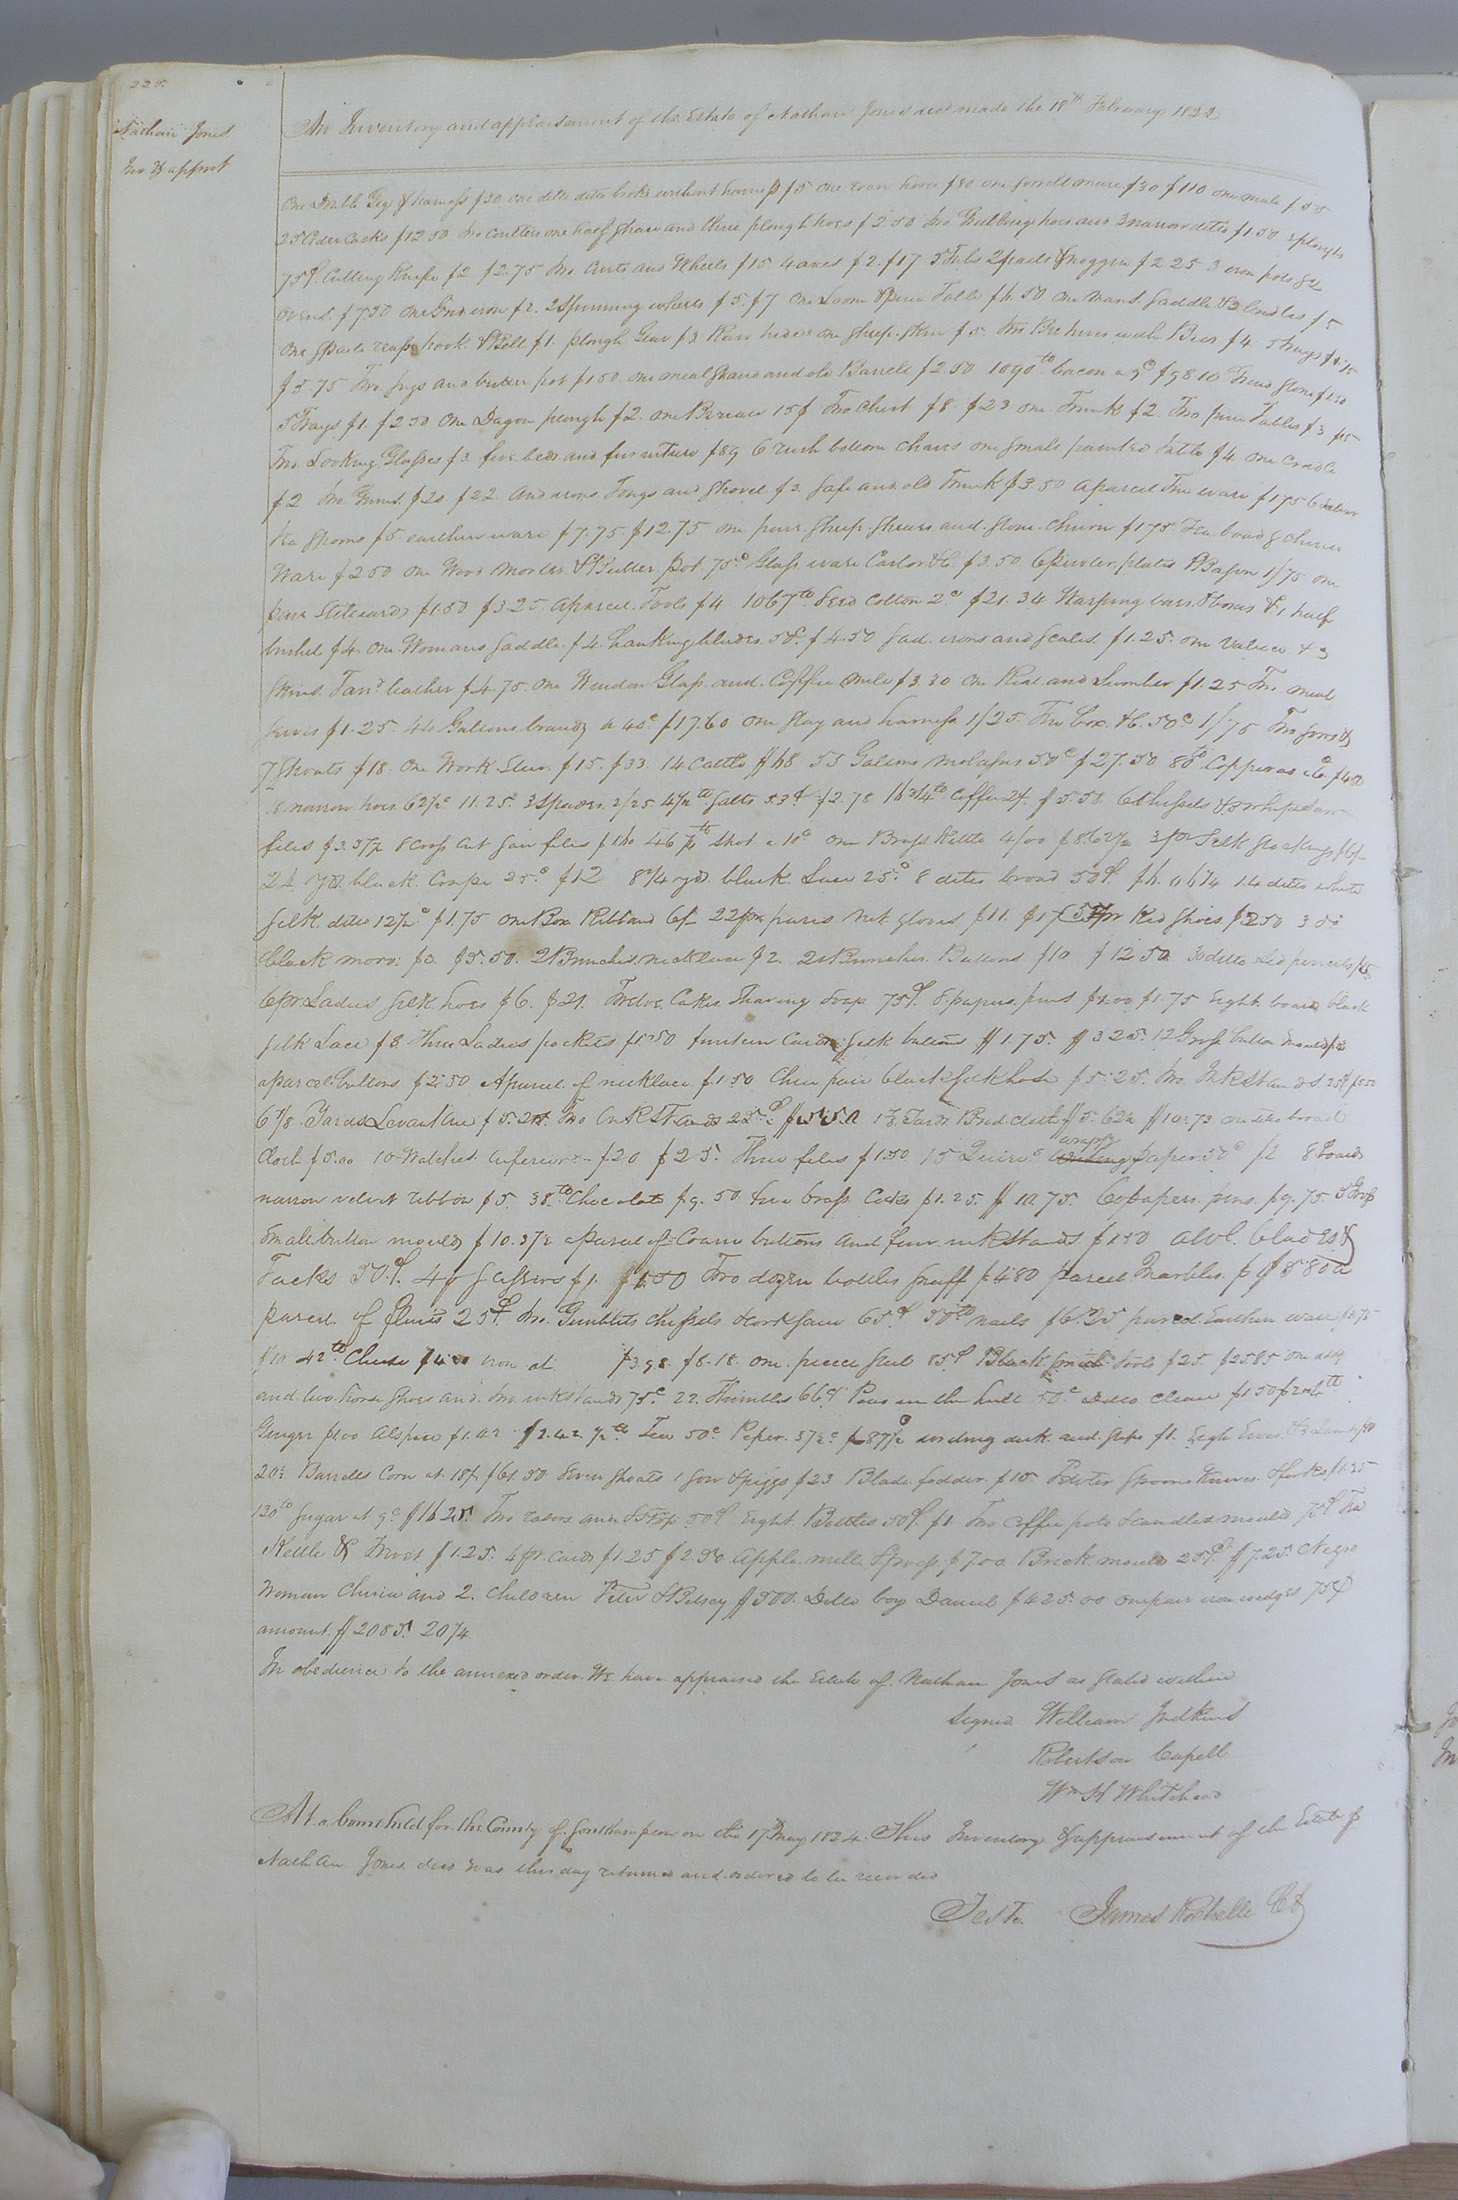 225.
Nathan Jones
Inv & apprst
An Inventory and appraisement of the Estate of Nathan Jones decd made the 18th February 1822
One Double Gig & Harness $30 one ditto ditto broke without harness $15 one roan horse $80 one sorrell mare $30 $110 one mule $55
25 Cider Casks $12 50 two coulters one half share and three plough hoes $2 50 two Hilling hoes and 3 narrow ditto $1.50 ploughs
75₵ Cutting Knife $2 $2.75 two Carts and Wheels $15 4 axes $2. $17 5 Tubs 2 pails & noggin $2 25 3 iron pots & 2
ovens $7.50 one Grid iron $2. 2 spinning wheels $5. $7 One Loom & pine Table $4.50 one mans Saddle & 2 bridles $5
One spade reap hook & Bell $1. plough Gear $3 Raw hides one sheep skin $5. two Bee hives with Bees $4 5 Hogs
$5 75 Two jugs and butter pot $1 50. one meal stand and old Barrels $2.50 1090 lb bacon a 9c $98 10 Grind stone $1 50
5 Trays $1. $2 50 One Dagon plough $2. one Bureau 15$ Two Chest $8. $23 one Trunk $2. Two pine Tables $3
Two Looking Glasses $3. five beds and furniture $89 6 rush bottom chairs one small painted table $4 one Cradle
$2 two Guns $20 $22 And irons Tongs and Shovel $3. Safe and old Trunk $3.50 a parcel Tin ware $1 75 6 silver
tea spoons $5. earthen ware $7.75. $12.75 one pair sheep shears and stone churn $1 75. Tea board & China
Ware $2 50 one Wood Morter & Butter pot 75c Glass ware Castor &C. $3.50 6 pewter plates & Bason 1/75 one
pair Stilleards $1.50 $3 25. a parcel Tools $4 1067 lb Seed Cotton 2c $21.34 Warping bars & boxes & 1 half
bushel $4. One Womans Saddle $4 Hanking blades 50c $4.50 Sad irons and Scales $1.25. one Valice & 3
skins Tand leather $4.75. one Window Glass and Coffee Mill $3.30 one Keel and Lumber $1.25 Two meal
sives $1.25. 44 Gallons brandy a 40c $17.60 one Slay and harness 1/25. The box &C. 50c 1/75 Two sows &
7 Shoats $18. One Work Steer $15. $33. 14 Cattle $48 55 Gallons molasses 50c $27.50 80 lb Copperas
18 narrow hoes 62½c 11.25. 3 Spades 2/25. lb Salts $2.78 lb Coffee $5.50. 6 Chissels & 3 whipsaw
files $3.37½ 8 Cross Cut saw files 46¾ lb Shot a 10c one Brass Kettle 4/00 $8.62½ 3 pr Silk Stockings
24 yds black Crape 25c $12 8¼ yds black Lace 25c 8 ditto broad 50₵ 14 ditto white
silk ditto 12½c $1.75 one Box Ribband 6$ 22 pr pairs net gloves $11. $17 pr Kid Shoes 3 do
black moro: $3. $5.50. 2 Bunches necklace $2 20 Bunches Buttons $10 $12 50 30 ditto Led pencils
6 pr Ladies silk hose $6. $21. Twelve Cakes Shaving Soap 75₵ 8 papers pins $1.00 $1.75 eight boards black
silk Lace $8. Three Ladies pockets $1.50 fourteen Cards Silk buttons $1.75. $3 25. 12 Gross button moulds
a parcel buttons $2.50 A parcel of necklace $1.50 three pair black silk hose $5.25. two Ink Stands 25₵
6 7/8 Yards Levantine $5.25. Two Ink Stands 25₵ $5.50 1 7/8 Yards Broad cloth $5.62½ $10.73 one ditto broad
Cloth $5.00 10 Watches inferior $20 $25. Three files $1.50 15 Quires wraping paper 50c $2 8 boards
narrow velvet ribbon $5. 38 lb Chocolate $9.50 two brass Cocks $1.25. $10.75. 69 papers pins $9.75. 5 Gross
Small button moulds $10.37½ a parcel of Coarse buttons and four inkstands $1.50 awl blades &
Tacks 50₵. 40 Gassers $1. $1.50 Two dozen bottles Snuff $4 80 parcel Marbles $5 80 a
parcel of flints 25₵. two Gimblets Chissels & Cork Saw 65₵ 50 lb nails $6.25 parcel Earthen ware $3.75
$10 42 lb Cheese $4.20 iron at $3.98. $8.18. one piece steel 85₵ Black Smith tools $25. $25 85 one adz
and two horse shoes and two inkstands 75c 22 Thimbles 66₵ Peas in the hull 50c Ditto clean $1.50 lb
Ginger $1.00 Alspice $1.42 $2.42 ½ lb Tea 50c Peper 37½c $87½ winding sink and Slope $1. Eight Ewes & 3 Lambs
20½ Barrells Corn at 18/ $61.50 Seven Shoats 1 Sow & piggs $23 Blade fodder $10 Pewter Spoons Knives & forks
130 lb Sugar at 9c $16 25. Two razors and Strop 50₵ Eight Bottles 50₵ $1. Two Coffee pots & candles mould 75₵ Tea
Kettle & Trivet $1.25. 4 pr Cards $1.25 $2.50. Apple mill & press $7.00 Brick moulds 25₵ $7.25. Negro
Woman and 2 Children Peter & Betsey $500. Ditto boy Daniel $425.00 one pair iron wedges 75₵
amount $2085. 20¼
In obedience to the annexed order. We have appraised the Estate of Nathan Jones as stated within
Signed William Judkins
Robertson Capell
Wm H Whitehead
At a Court held for the County of Southampton on the 17 May 1824. This Inventory & appraisement of the Estate of
Nathan Jones decd was this day returned and ordered to be recorded
Teste. James Rochelle Ct